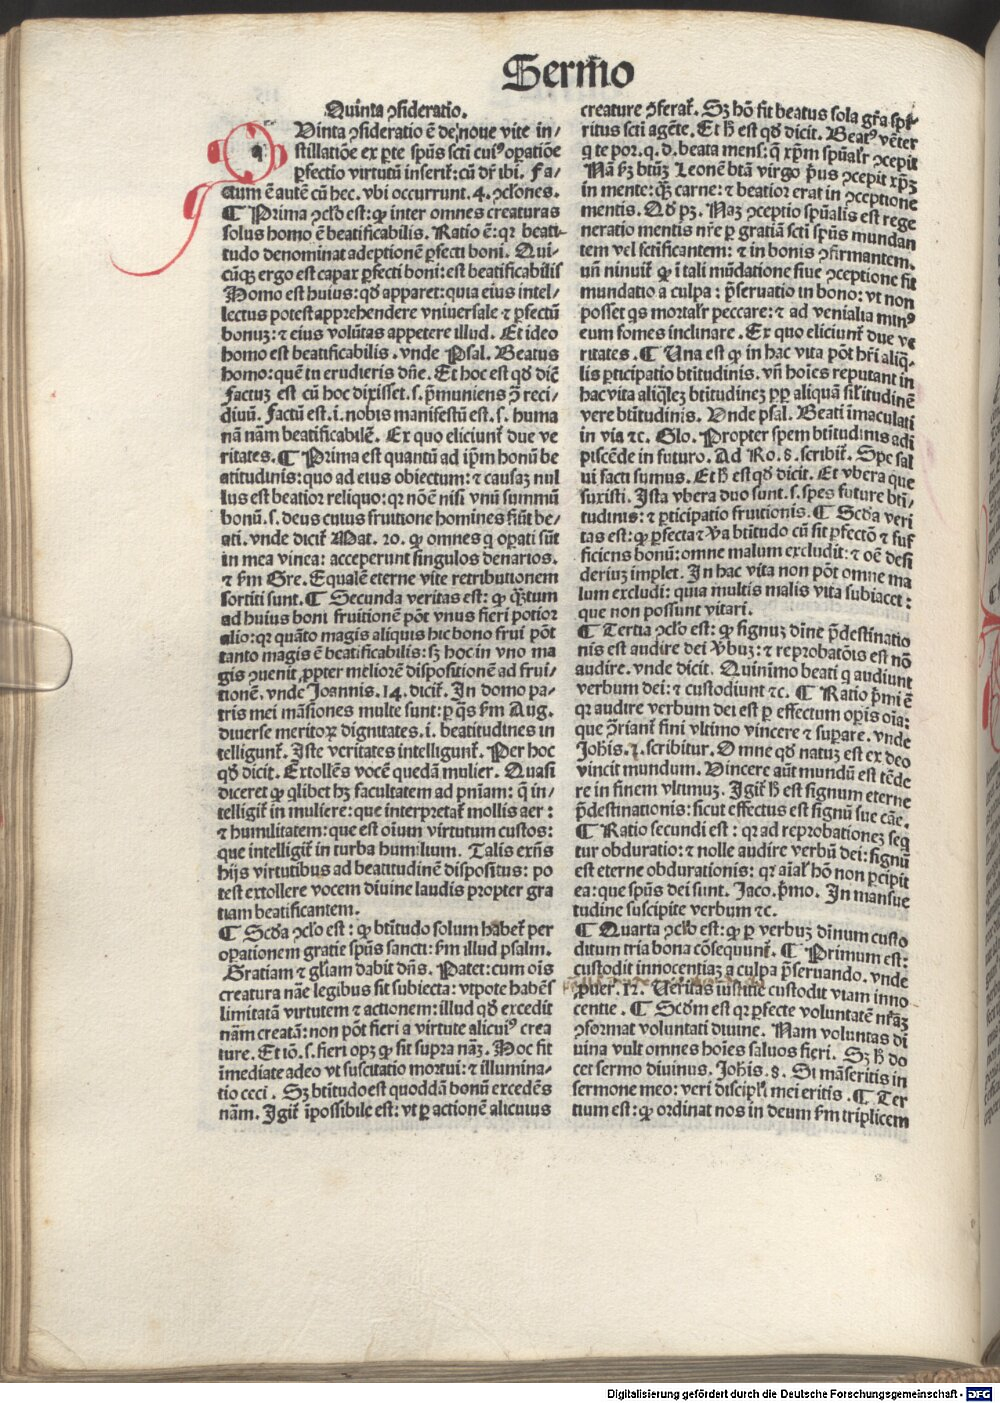 Sermo
Quinta ꝯsideratio.
Quinta ꝯsideratio ē de noue vite in/
stillatiōe ex ꝑte spūs scti cuiꝰ oꝑatiōe
ꝑfectio virtutū inserit̄: cū dr̄ ibi. Fa/
ctum ē autē cū hec. vbi occurrunt. 4. ꝯclōnes.
¶ Prima ꝯclō est: ꝙ inter omnes creaturas
solus homo ē beatificabilis. Ratio ē: qꝛ beati-
tudo denominat adeptionē ꝑfecti boni. Qui-
cūqꝫ ergo est capax ꝑfecti boni: est beatificabilis
Homo est huius: qđ apparet: quia eius intel/
lectus potest apprehendere vniuersale ⁊ ꝑfectū
bonuꝫ: ⁊ eius volūtas appetere illud. Et ideo
homo est beatificabilis. vnde Psal. Beatus
homo: quē tu erudieris dn̄e. Et hoc est qđ dic̄
Factuꝫ est cū hoc dixisset. s. p̄muniens ꝯ̄ reci/
diuū. Factū est. i. nobis manifestū est. s. huma
nā nām beatificabilē. Ex quo eliciunt̄ due ve
ritates. ¶ Prima est quantū ad ip̄m bonū be
atitudinis: quo ad eius obiectum: ⁊ causaꝫ nul
lus est beatior reliquo: qꝛ nō ē nisi vnū summū
bonū. s. deus cuius fruitione homines fiūt be/
ati. vnde dicit̄ Mat. 20. ꝙ omnes q oꝑati sūt
in mea vinea: acceperunt singulos denarios.
⁊ ẜm Gre. Equalē eterne vite retributionem
sortiti sunt. ¶ Secunda veritas est: ꝙ q̄tum
ad huius boni fruitionē pōt vnus fieri potior
alio: qꝛ quāto magis aliquis hic bono frui pōt
tanto magis ē beatificabilis: sꝫ hoc in vno ma
gis ꝯuenit ꝓpter meliorē dispositionē ad frui/
tionē. vnde Joannis. 14. dicit̄. In domo pa-
tris mei māsiones multe sunt: ꝑ q̄s ẜm Aug.
diuerse meritoꝝ dignitates. i. beatitudines in
telligunt̄. Iste veritates intelligunt̄. Per hoc
qđ dicit. Extollēs vocē quedā mulier. Quasi
diceret ꝙ qlibet hꝫ facultatem ad pn̄iam: q̄ in/
telligit̄ in muliere: que interpretat̄ mollis aer:
⁊ humilitatem: que est oīum virtutum custos:
que intelligit̄ in turba humilium. Talis exn̄s
hijs virtutibus ad beatitudinē dispositus: po
test extollere vocem diuine laudis propter gra
tiam beatificantem.
¶ Scd̄a ꝯclō est: ꝙ btītudo solum habet̄ per
oꝑationem gratie spūs sancti: ẜm illud psalm.
Gratiam ⁊ gl̄iam dabit dn̄s. Patet: cum oīs
creatura nāe legibus sit subiecta: vtpote habēs
limitatā virtutem ⁊ actionem: illud qđ excedit
nām creatā: non pōt fieri a virtute alicuiꝰ crea
ture. Et iō. s. fieri opꝫ ꝙ sit supra nāꝫ. Hoc fit
īmediate a deo vt suscitatio mortui: ⁊ illumina-
tio ceci. Sꝫ btītudo est quoddā bonū excedēs
nām. Igit̄ īpossibile est: vt ꝑ actionē alicuius
creature ꝯferat̄. Sꝫ hō fit beatus sola gr̄a spi-
ritus scti agēte. Et h̄ est qđ dicit. Beatꝰ vēter
q te por. q. d. beata mens: q̄ xp̄m spūalr̄ ꝯcepit
Nā ẜꝫ btūꝫ Leonē btā virgo pꝰ ꝯcepit xp̄ꝫ
in mente: qꝫ carne: ⁊ beatior erat in ꝯceptione
mentis. Qđ pꝫ. Naꝫ ꝯceptio spūalis est rege
neratio mentis nr̄e ꝑ gratiā scti spūs mundan
tem vel sctificantem: ⁊ in bonis ꝯfirmantem.
vn̄ ninuit̄ ꝙ ī tali mūdatione siue ꝯceptione fit
mundatio a culpa: p̄seruatio in bono: vt non
posset qs mortalr̄ peccare: ⁊ ad venialia minꝰ
eum fomes inclinare. Ex quo eliciunt̄ due ve
ritates. ¶ Una est ꝙ in hac vita pōt hr̄i aliq̄-
lis ꝑticipatio btitudinis. vn̄ hoīes reputant in
hac vita aliq̄leꝫ btitudineꝫ ꝓꝑ aliquā sil̄itudinē
vere btitudinis. Vnde psal. Beati īmaculati
in via ⁊c. Glo. Propter spem btitudinis adi
piscēde in futuro. Ad Ro. 8. scribit̄. Spe sal
ui facti sumus. Et h̄ est qđ dicit. Et vbera que
suxisti. Ista vbera duo sunt. s. spes future btī-
tudinis: ⁊ ꝑticipatio fruitionis. ¶ Scd̄a veri
tas est: ꝙ perfecta ⁊ v̄a btitudo cū sit ꝑfectō ⁊ suf
ficiens bonū: omne malum excludit: ⁊ oē desi
deriuꝫ implet. In hac vita non pōt omne ma
lum excludi: quia multis malis vita subiacet:
que non possunt vitari.
¶ Tertia ꝯclō est: ꝙ signuꝫ diīne p̄destinatio
nis est audire dei v̄buꝫ: ⁊ reprobatōis est nō
audire. vnde dicit. Quinīmo beati q audiunt
verbum dei: ⁊ custodiunt ⁊c. ¶ Ratio p̄mi ē
qꝛ audire verbum dei est ꝑ effectum oꝑis oīa:
que ꝯ̄riant̄ fini vltimo vincere ⁊ suꝑare. vnde
Johīs. ⁊. scribitur. Omne qđ natuꝫ est ex deo
vincit mundum. Vincere aūt mundū est tēde
re in finem vltimuꝫ. Igit̄ h̄ est signum eterne
p̄destinationis: sicut effectus est signū sue cāe.
¶ Ratio secundi est: qꝛ ad reprobationeꝫ seq
tur obduratio: ⁊ nolle audire verbū dei: signū
est eterne obdurationis: qꝛ aīal̄ hō non ꝑcipit
ea: que spūs dei sunt. Jaco. p̄mo. In mansue
tudine suscipite verbum ⁊c.
¶ Quarta ꝯclō est: ꝙ ꝑ verbuꝫ dīnum custo
ditum tria bona cōsequunt̄. ¶ Primum est:
custodit innocentiaꝫ a culpa p̄seruando. vnde
ꝓuer. 12. Veritas iustitie custodit viam inno
centie. ¶ Scd̄m est qꝛ ꝑfecte voluntatē nr̄aꝫ
ꝯformat voluntati diuine. Nam voluntas di
uina vult omnes hoīes saluos fieri. Sꝫ h̄ do
cet sermo diuinus. Johīs. 8. Si māseritis in
sermone meo: veri discipl̄i mei eritis. ¶ Ter
tium est: ꝙ ordinat nos in deum ẜm triplicem
Digitalisierung gefördert durch die Deutsche Forschungsgemeinschaft - DFG